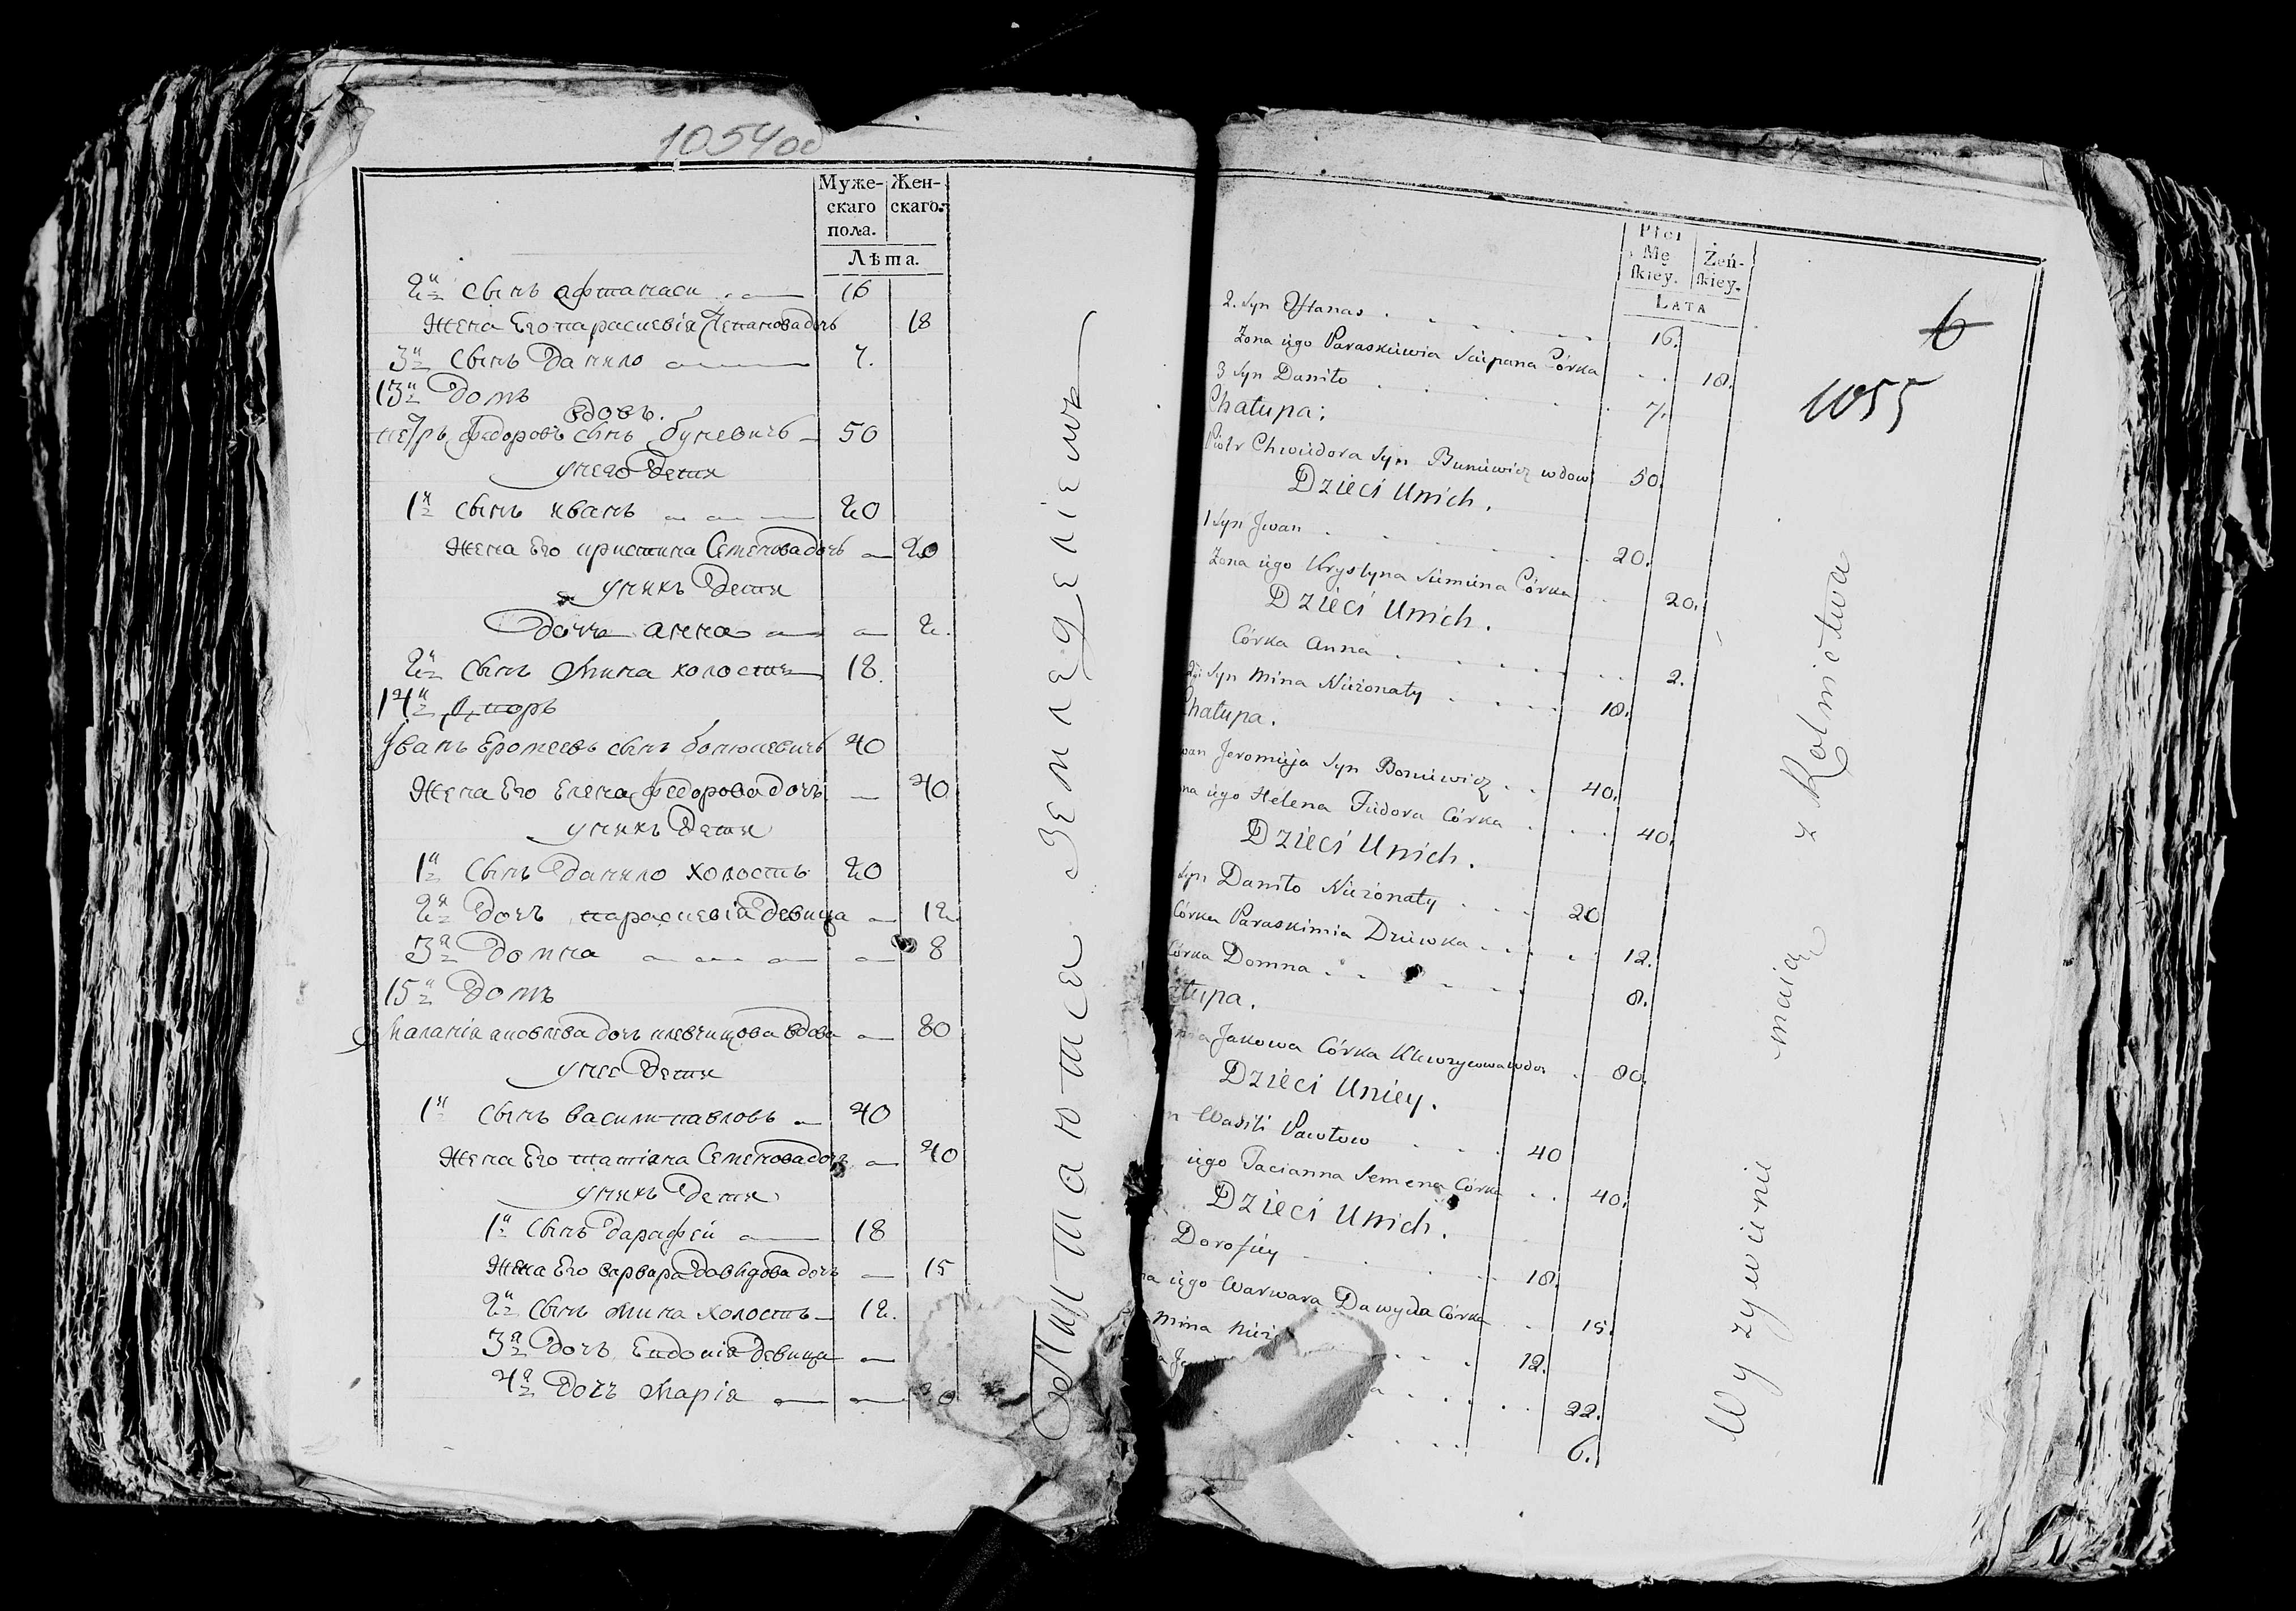 1054 об
Муже-
скаго
пола.
Жен-
скаго.
Лѣта.
2й сынъ афтанаси 16
Жена Его параскевiя Степанова дочь 18
3й сынъ Данило 7.
13й Домъ
вдовъ.
петръ федоровъ сынъ буневичъ 50
унего Дети
1й сынъ иванъ 20
Жена Его христина Семенова дочь 20
унихъ Дети
Дочь анна 2.
2й сынъ мина холостъ 18.
14й
Иванъ Еромеевъ сынъ бонюкевичъ 40
Жена Его Елена федорова дочь 40
унихъ Дети
1й сынъ Данило холостъ 20
2я Дочь параскевiя Девица 12
3я Домна 8
15й Домъ
Маланiя яковлева дочь клевчицова вдова 80
унее Дети
1й сынъ василий павловъ 40
Жена Его татiяна Семенова дочь 40
унихъ Дети
1й сынъ Дарафей 18
Жена Его варвара Давыдова дочь 15
2й сынъ мина холостъ 12.
3я Дочь Евдокiя Девица
4я Дочь Марiя
Питаются Земледелiемъ
Płci
Mę
skiey.
Żeń-
skiey.
LATA
6
1055
2. Syn Aftanas 16.
Zona iego Paraskiewia Sciepana Córka 18.
3 Syn Daniło 7.
Chałupa:
Piotr Chwiedora Syn Buniewicz wdow 50.
Dzieci Unich.
1 Syn Jwan 20.
Zona iego Krystyna Siemiena Córka 20.
Dzieci Unich.
Córka Anna 2.
2i Syn Mina Nieżonaty 18.
Chałupa.
wan Jeromieja Syn Boniewicz 40.
na iego Helena Fiedora Córka 40.
Dzieci Unich.
Syn Daniło Nieżonaty 20
Córka Paraskimia Dziewka 12.
Córka Domna 8.
ałupa.
Jakowa Córka Klewzycowa wdo 80.
Dzieci Uniey.
n Wasili Pawłow 40
iego Tacianna Semena Córka 40.
Dzieci Unich.
Dorofiey 18.
na iego Warwara Dawyda Córka 15.
Mina Nież 12.
22.
6.
Wyzywienie maią z Rolnictwa